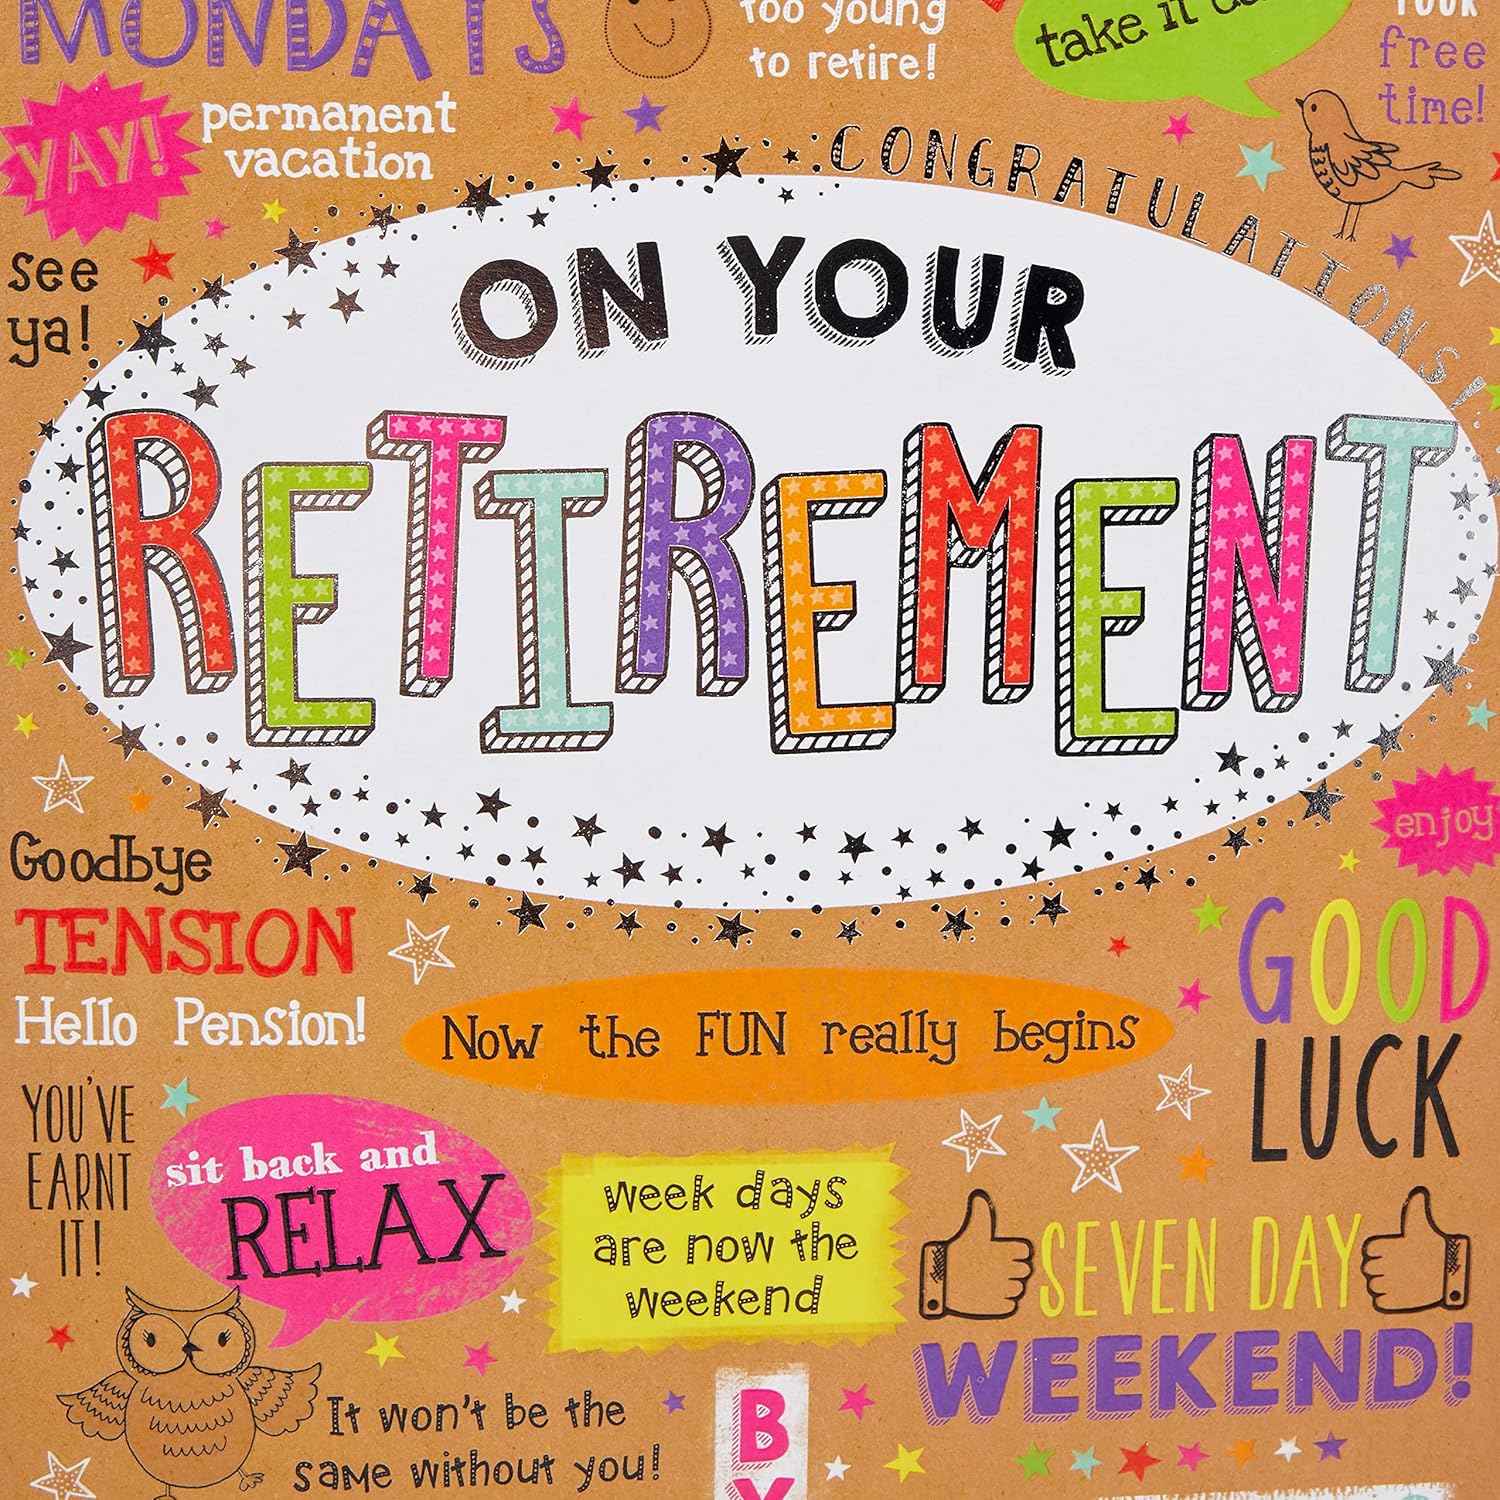 MONDAYS
too young
to retire!
take it
YOUR
free
time!
YAY!
permanent
vacation
CONGRATULATIONS!
see
ya!
ON YOUR
RETIREMENT
enjoy
Goodbye
TENSION
Hello Pension!
Now the FUN really begins
GOOD
LUCK
YOU'VE
EARNT
IT!
sit back and
RELAX
week days
are now the
weekend
SEVEN DAY
WEEKEND!
It won't be the
same without you!
B
Y